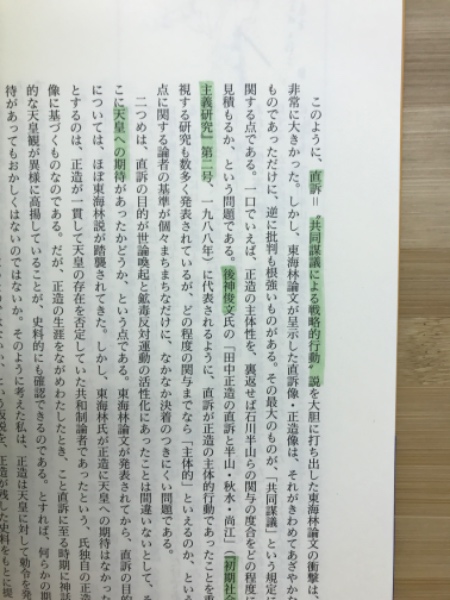 このように、直訴＝〝共同謀議による戦略的行動〟説を大胆に打ち出した東海林論文の衝撃は、
非常に大きかった。しかし、東海林論文が呈示した直訴像・正造像は、それがきわめてあざやかな
ものであっただけに、逆に批判も根強いものがある。その最大のものが、「共同謀議」という規定に
関する点である。一口でいえば、正造の主体性を、裏返せば石川半山らの関与の度合をどの程度に
見積もるか、という問題である。後神俊文氏の「田中正造の直訴と半山・秋水・尚江」（『初期社会
主義研究』第二号、一九八八年）に代表されるように、直訴が正造の主体的行動であったことを重
視する研究も数多く発表されているが、どの程度の関与までなら「主体的」といえるのか、という
点に関する論者の基準が個々まちまちなだけに、なかなか決着のつきにくい問題である。
二つめは、直訴の目的が世論喚起と鉱毒反対運動の活性化にあったことは間違いないとして、そ
こに天皇への期待があったかどうか、という点である。東海林論文が発表されてから、直訴の目的
については、ほぼ東海林説が踏襲されてきた。しかし、東海林氏が正造に天皇への期待はなかった
とするのは、正造が一貫して天皇の存在を否定していた共和制論者であったという、氏独自の正造
像に基づくものなのである。だが、正造の生涯をながめわたしたとき、こと直訴に至る時期に神話
的な天皇観が異様に高揚していることが、史料的にも確認できるのである。とすれば、何らかの期
待があってもおかしくはないのではないか。そのように考えた私は、正造は天皇に対して勅令を発